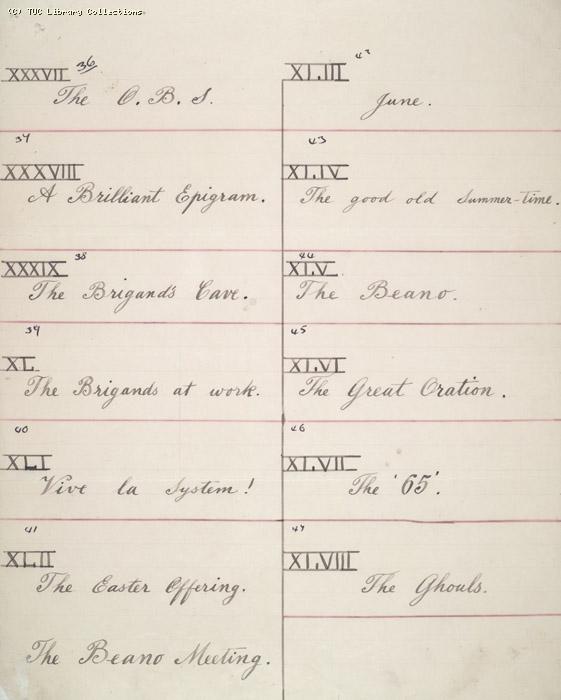 (C) TUC Library Collections
XXXVII 36
The O. B. S.
37
XXXVIII
A Brilliant Epigram.
XXXIX 38
The Brigands' Cave.
39
XL
The Brigands at work.
40
XLI
Vive la System!
41
XLII
The Easter Offering.
The Beano Meeting.
XLIII 42
June.
43
XLIV
The good old Summer-time.
44
XLV
The Beano.
45
XLVI
The Great Oration.
46
XLVII
The '65'.
47
XLVIII
The Ghouls.